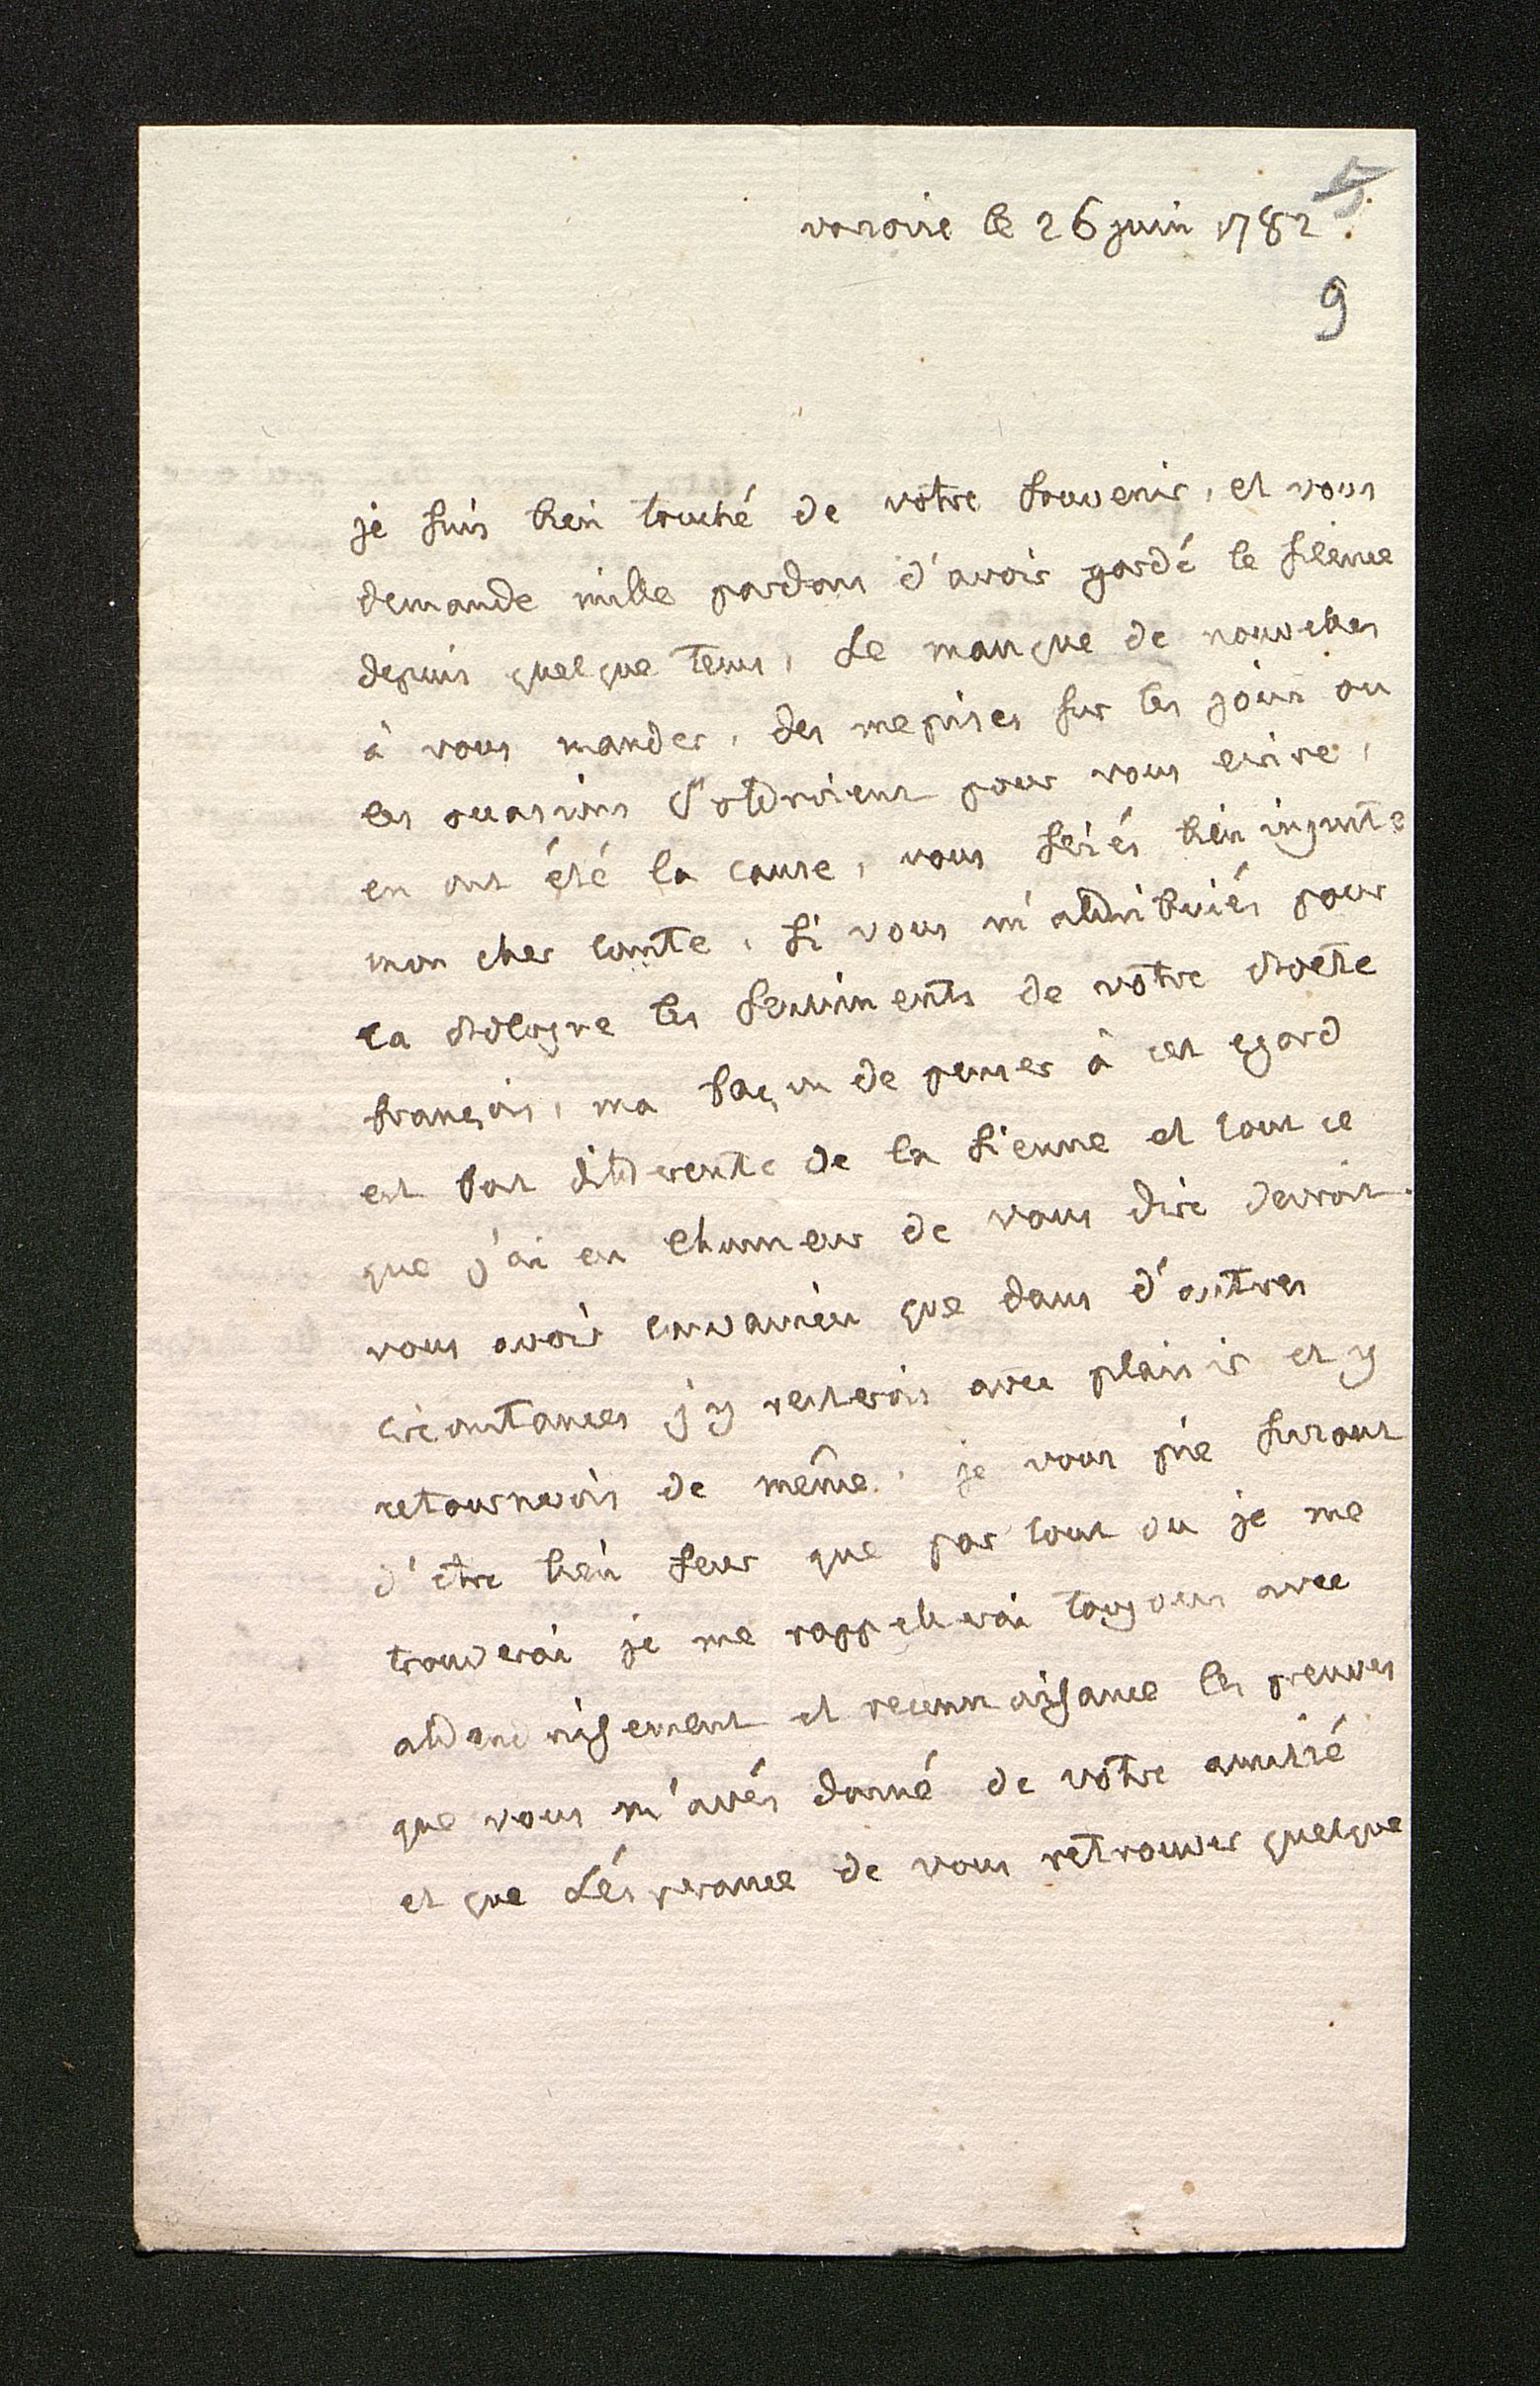 5
varsovie le 26 juin 1782.
9
je suis bien touché de votre souvenir, et vous
demande mille pardons d'avoir gardé le silence
depuis quelque tems, Le manque de nouvelles
à vous mander, des meprises sur les jours ou
les occasions s'offroient pour vous ecrire,
en ont été la cause, vous seriés bien injuste
mon cher comte, si vous m'attribuiés pour
la Pologne les sentiments de votre Poete
françois, ma façon de penser à cet egard
est fort differente de la sienne et tout ce
que j'ai eu lhonneur de vous dire devroit
vous avoir convaincu que dans d'autres
circonstances j'y resterois avec plaisir et y
retournerois de même. je vous prie surtout
d'etre bien seur que par tout ou je me
trouverai je me rappellerai toujours avec
attendrissement et reconnaissance les preuves
que vous m'avés donné de votre amitié
et que Lésperance de vous retrouver quelque